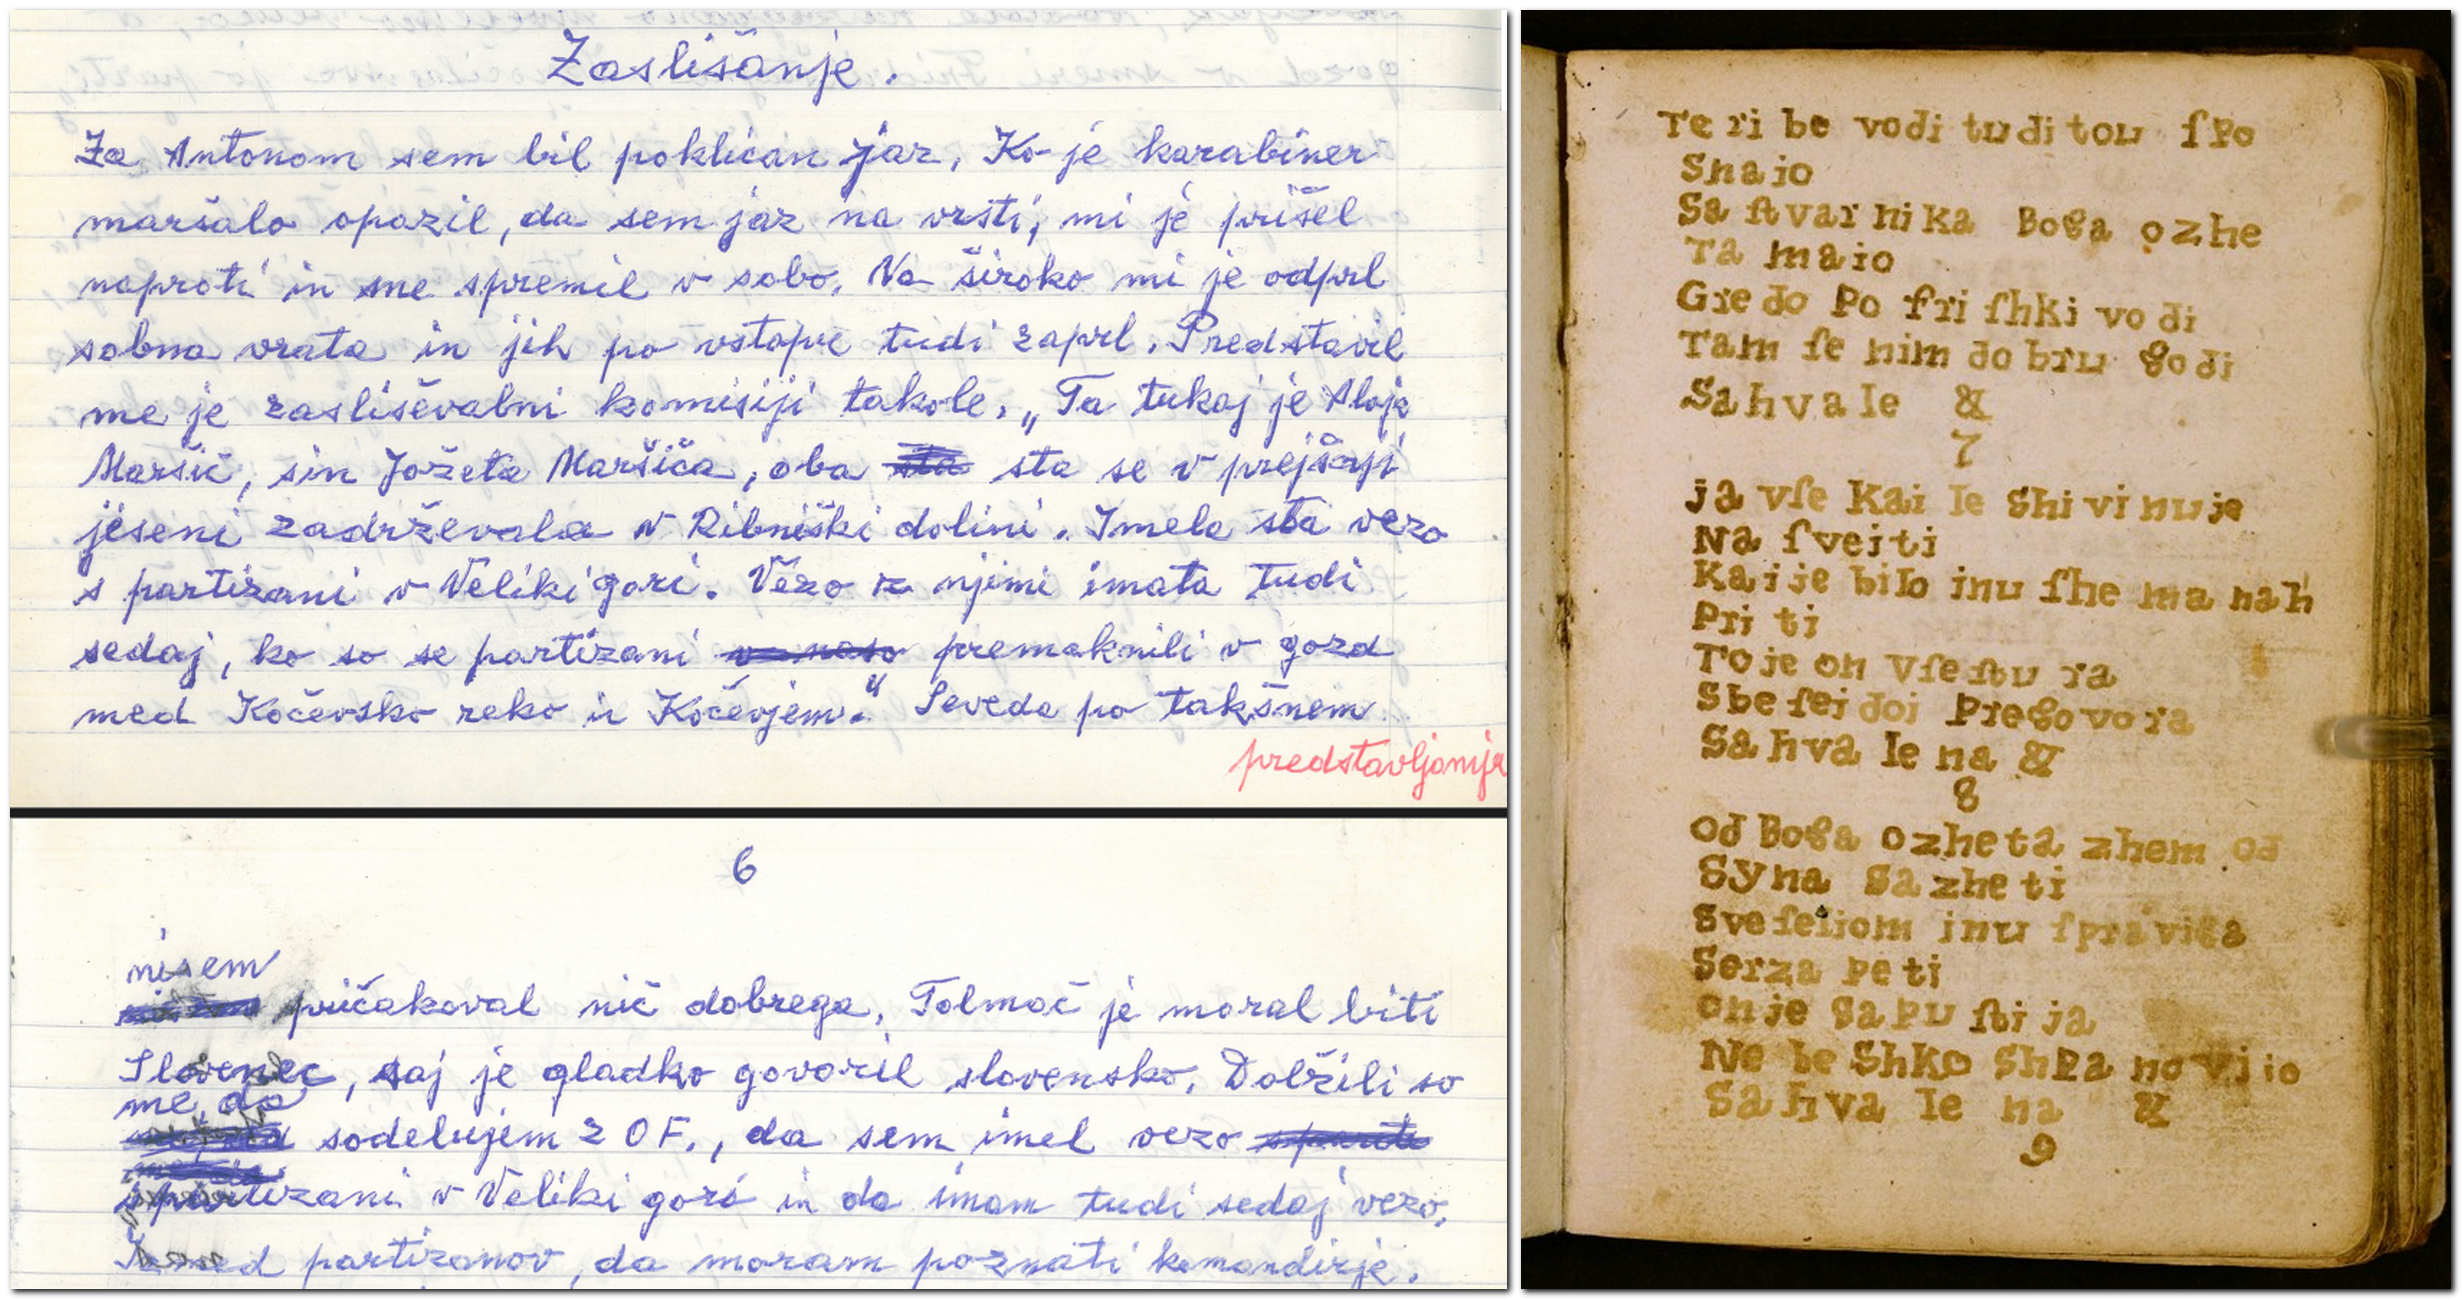 Zaslišanje.
Za Antonom sem bil poklican jaz. Ko je karabiner
maršalo opazil, da sem jaz na vrsti, mi je prišel
naproti in me spremil v sobo. Na široko mi je odprl
sobna vrata in jih po vstopu tudi zaprl. Predstavil
me je zasliševalni komisiji takole. „Ta tukaj je Alojz
Maršič, sin Jožeta Maršiča, oba sta sta se v prejšnji
jeseni zadrževala v Ribniški dolini. Imela sta vezo
s partizani v Veliki gori. Vezo z njimi imata tudi
sedaj, ko so se partizani premaknili v gozd
med Kočevsko reko in Kočevjem." Seveda po takšnem
predstavljanju
6
nisem
pričakoval nič dobrega. Tolmač je moral biti
Slovenec, saj je gladko govoril slovensko. Dolžili so
me, da
sodelujem z OF., da sem imel vezo
s partizani v Veliki gori in da imam tudi sedaj vezo.
partizanov, da moram poznati komandirje.
Te ri be vodi tudi tou ſpo
Snajo
Sa ſtvarnika Boga ozhe
Ta majo
Gredo po friſhki vodi
Tam ſe nim dobru godi
Sahvale &
7
ja vſe kai le shivi nuje
Na ſveiti
Kai je bilo inu ſhe ma nah
Priti
To je on vſe ſtu ra
Sbeſei doi pregovora
Sahva le na &
8
Od Boga ozheta zhem od
Syna sazheti
Sveſeliom inu ſpraviga
Serza peti
on je sapu ſti ja
Ne be Shko Shpa no vijo
Sahva le na &
9